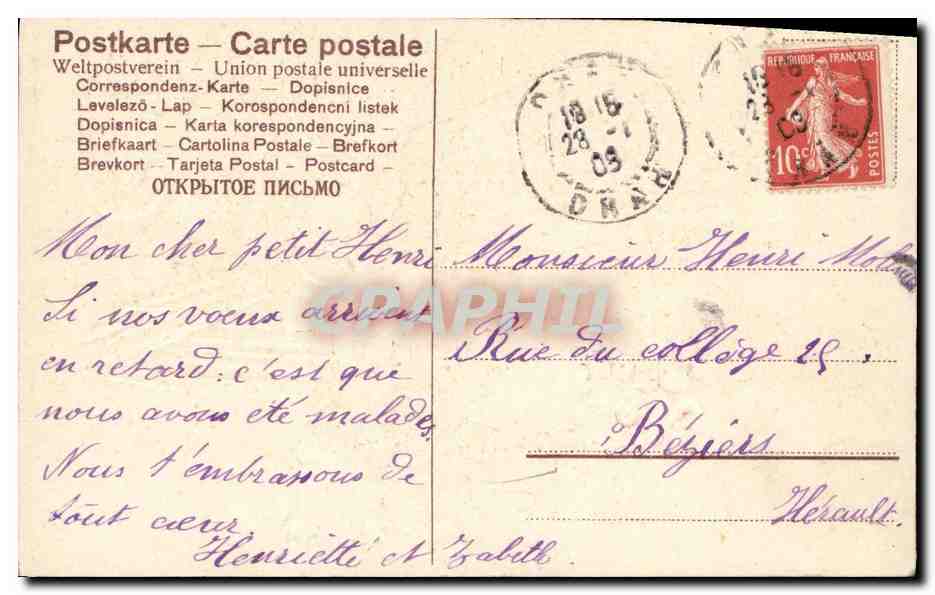 Postkarte — Carte postale
Weltpostverein – Union postale universelle
Correspondenz-Karte — Dopisnice
Levelező - Lap — Korospondencni listek
Dopisnica — Karta korespondencyjna —
Briefkaart – Cartolina Postale – Brefkort
Brevkort – Tarjeta Postal – Postcard –
ОТКРЫТОЕ ПИСЬМО
Mon cher petit Henri
Si nos voeux arrivent
en retard: c'est que
nous avons été malades.
Nous t'embrassons de
tout cœur
Henriette et Zabeth
ORAN
18 15
28 -1
09
ORAN
18 15
28 -1
09
REPUBLIQUE FRANÇAISE
10c
POSTES
Monsieur Henri
Rue du collège 25.
à Béziers
Hérault.
CPAPHIL